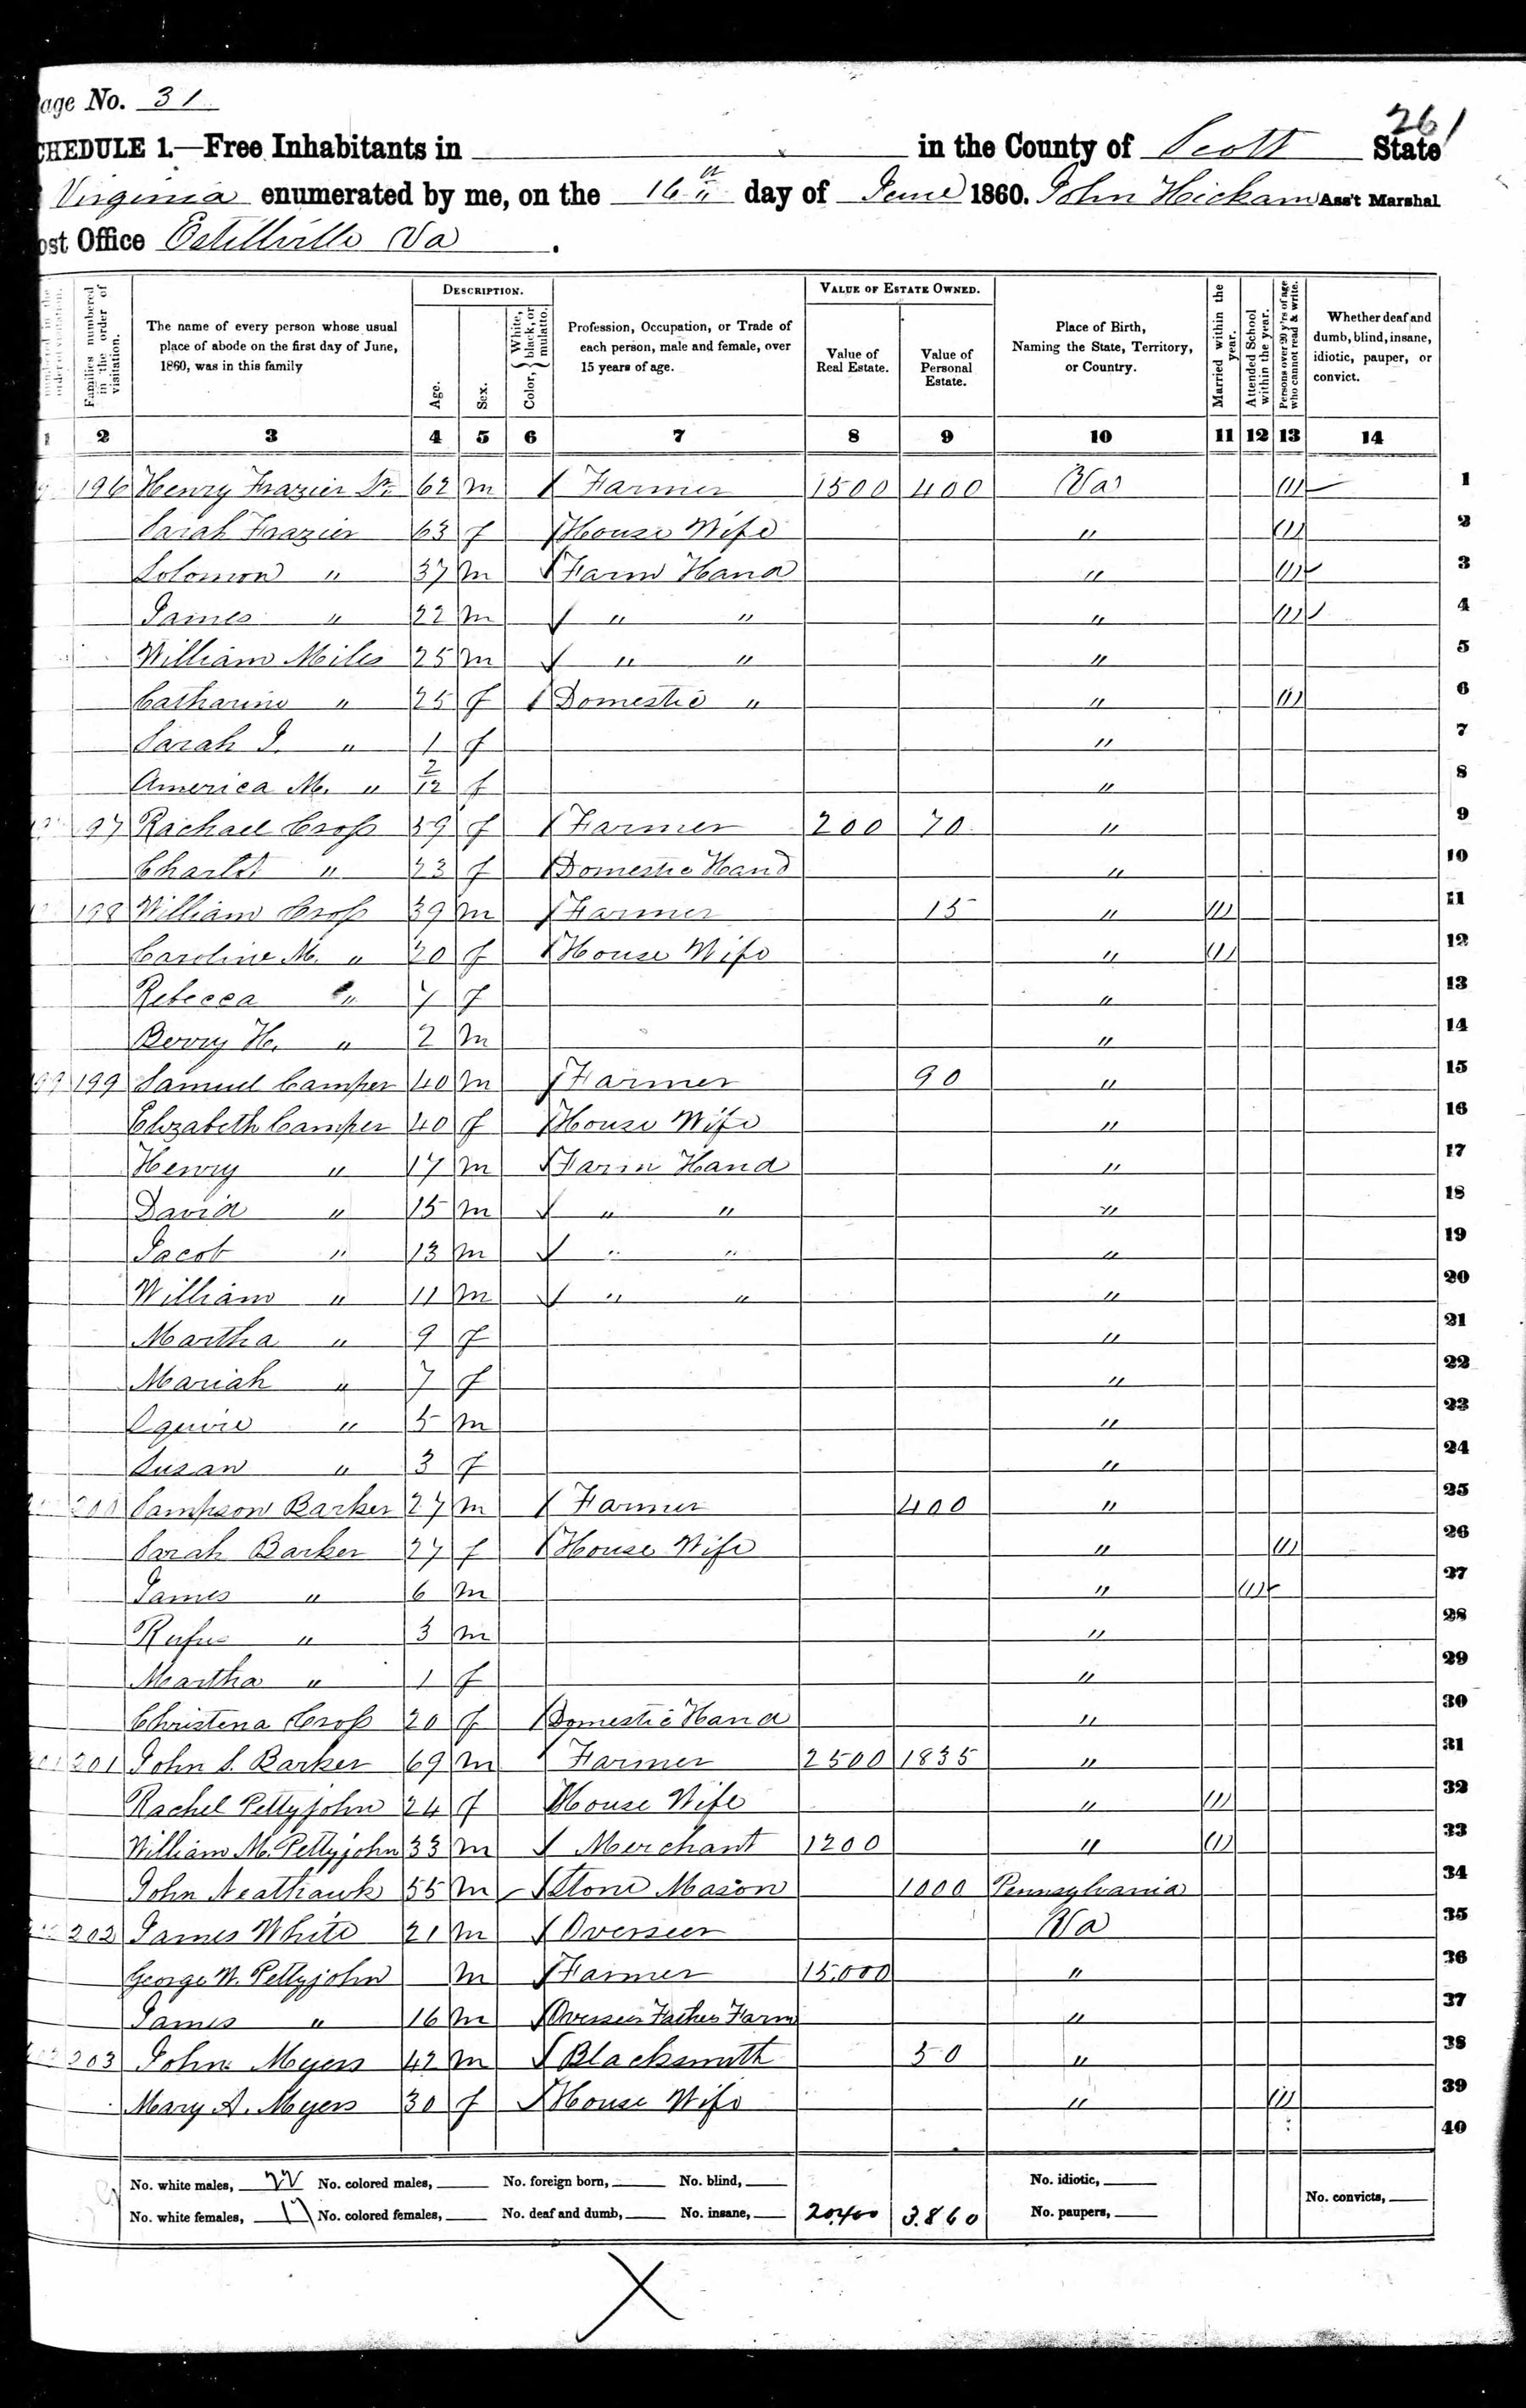 age No. 31
261
CHEDULE 1.—Free Inhabitants in in the County of Scott State
Virginia enumerated by me, on the 16th day of June 1860. John Hickam Ass't Marshal
ost Office Estillville Va .
DESCRIPTION. VALUE OF ESTATE OWNED.
Families numbered in the order of visitation. The name of every person whose usual place of abode on the first day of June, 1860, was in this family Age. Sex. Color, { White, black, or mulatto. Profession, Occupation, or Trade of each person, male and female, over 15 years of age. Value of Real Estate. Value of Personal Estate. Place of Birth, Naming the State, Territory, or Country. Married within the year. Attended School within the year. Persons over 20 y'rs of age who cannot read & write. Whether deaf and dumb, blind, insane, idiotic, pauper, or convict.
1 2 3 4 5 6 7 8 9 10 11 12 13 14
196 Henry Frazier Sr. 62 m / Farmer 1500 400 Va (1) 1
Sarah Frazier 63 f / House Wife " (1) 2
Solomon " 37 m / Farm Hand " (1) 3
James " 22 m / " " " (1) 4
William Miles 25 m / " " " 5
Catharine " 25 f / Domestic " " (1) 6
Sarah J. " 1 f " 7
America M. " 2/12 f " 8
197 Rachael Cross 59 f / Farmer 200 70 " 9
Charlot " 23 f / Domestic Hand " 10
198 William Cross 39 m / Farmer 15 " (1) 11
Caroline M. " 20 f / House Wife " (1) 12
Rebecca " 7 f " 13
Berry H. " 2 m " 14
199 199 Samuel Camper 40 m / Farmer 90 " 15
Elizabeth Camper 40 f / House Wife " 16
Henry " 17 m / Farm Hand " 17
David " 15 m / " " " 18
Jacob " 13 m / " " " 19
William " 11 m / " " " 20
Martha " 9 f " 21
Mariah " 7 f " 22
Squire " 5 m " 23
Susan " 3 f " 24
200 Sampson Barker 27 m / Farmer 400 " 25
Sarah Barker 27 f / House Wife " (1) 26
James " 6 m " (1) 27
Rufus " 3 m " 28
Martha " 1 f " 29
Christena Cross 20 f / Domestic Hand " 30
201 201 John S. Barker 69 m / Farmer 2500 1835 " 31
Rachel Pettyjohn 24 f / House Wife " (1) 32
William M. Pettyjohn 33 m / Merchant 1200 " (1) 33
John Neathawk 55 m / Stone Mason 1000 Pennsylvania 34
202 James White 21 m / Overseer Va 35
George W. Pettyjohn m / Farmer 15,000 " 36
James " 16 m / Overseer Fathers Farm " 37
203 John Myers 42 m / Blacksmith 50 " 38
Mary A. Myers 30 f / House Wife " (1) 39
40
No. white males, 22 No. colored males, No. foreign born, No. blind, No. idiotic,
No. white females, 17 No. colored females, No. deaf and dumb, No. insane, 20,400 3,860 No. paupers, No. convicts,
X